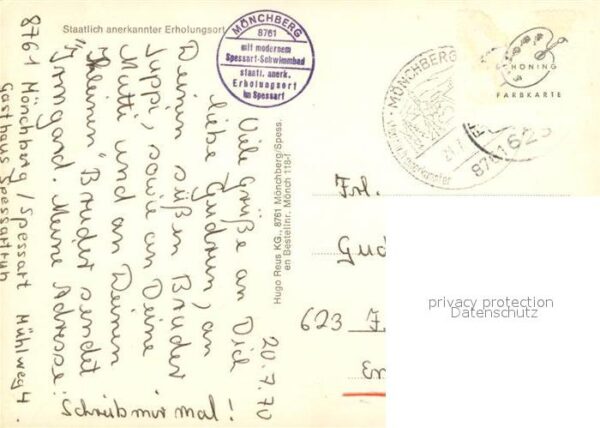 Staatlich anerkannter Erholungsort
MÖNCHBERG
8761
mit modernem
Spessart-Schwimmbad
staatl. anerk.
Erholungsort
im Spessart
MÖNCHBERG
21.7
8761
623
SCHÖNING
FARBKARTE
20.7.70
Viele Grüße an Dich
liebe Gudrun, an
Deinen süßen Bruder
Juppi, sowie an Deine
Mutti und an Deinen
"kleinen" Bruder sendet
Irmgard. Meine Adresse:
8761 Mönchberg/Spessart Mühlweg 4.
Gasthaus Spessartruh
Schreib mir mal!
Hugo Reus KG., 8761 Mönchberg/Spess.
en Bestellnr. Mönch 118-f
Frl.
Gud
623 F
Em
privacy protection
Datenschutz